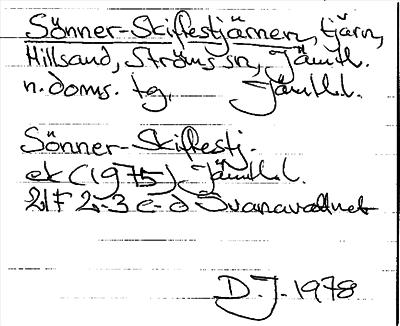 Sönner-Skiftestjärnen, tjärn,
Hillsand, Ströms sn, Jämtl.
n. doms. tg, Jämtl.l.
Sönner-Skiftestj.
ek (1975) Jämtl.l.
21F 2-3 c-d Svanavattnet
D.J. 1978